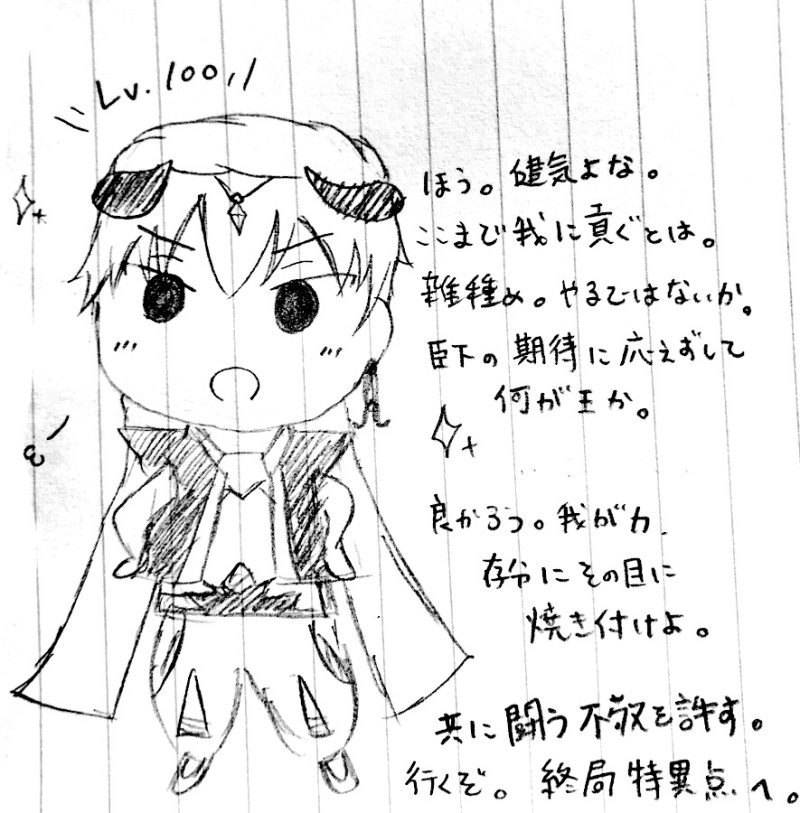 Lv.100
ほう。健気よな。
ここまで我に貢ぐとは。
雑種め。やるではないか。
臣下の期待に応えずして
何が王か。
良かろう。我が力、
存分にその目に
焼き付けよ。
共に闘う不敬を許す。
行くぞ。終局特異点へ。